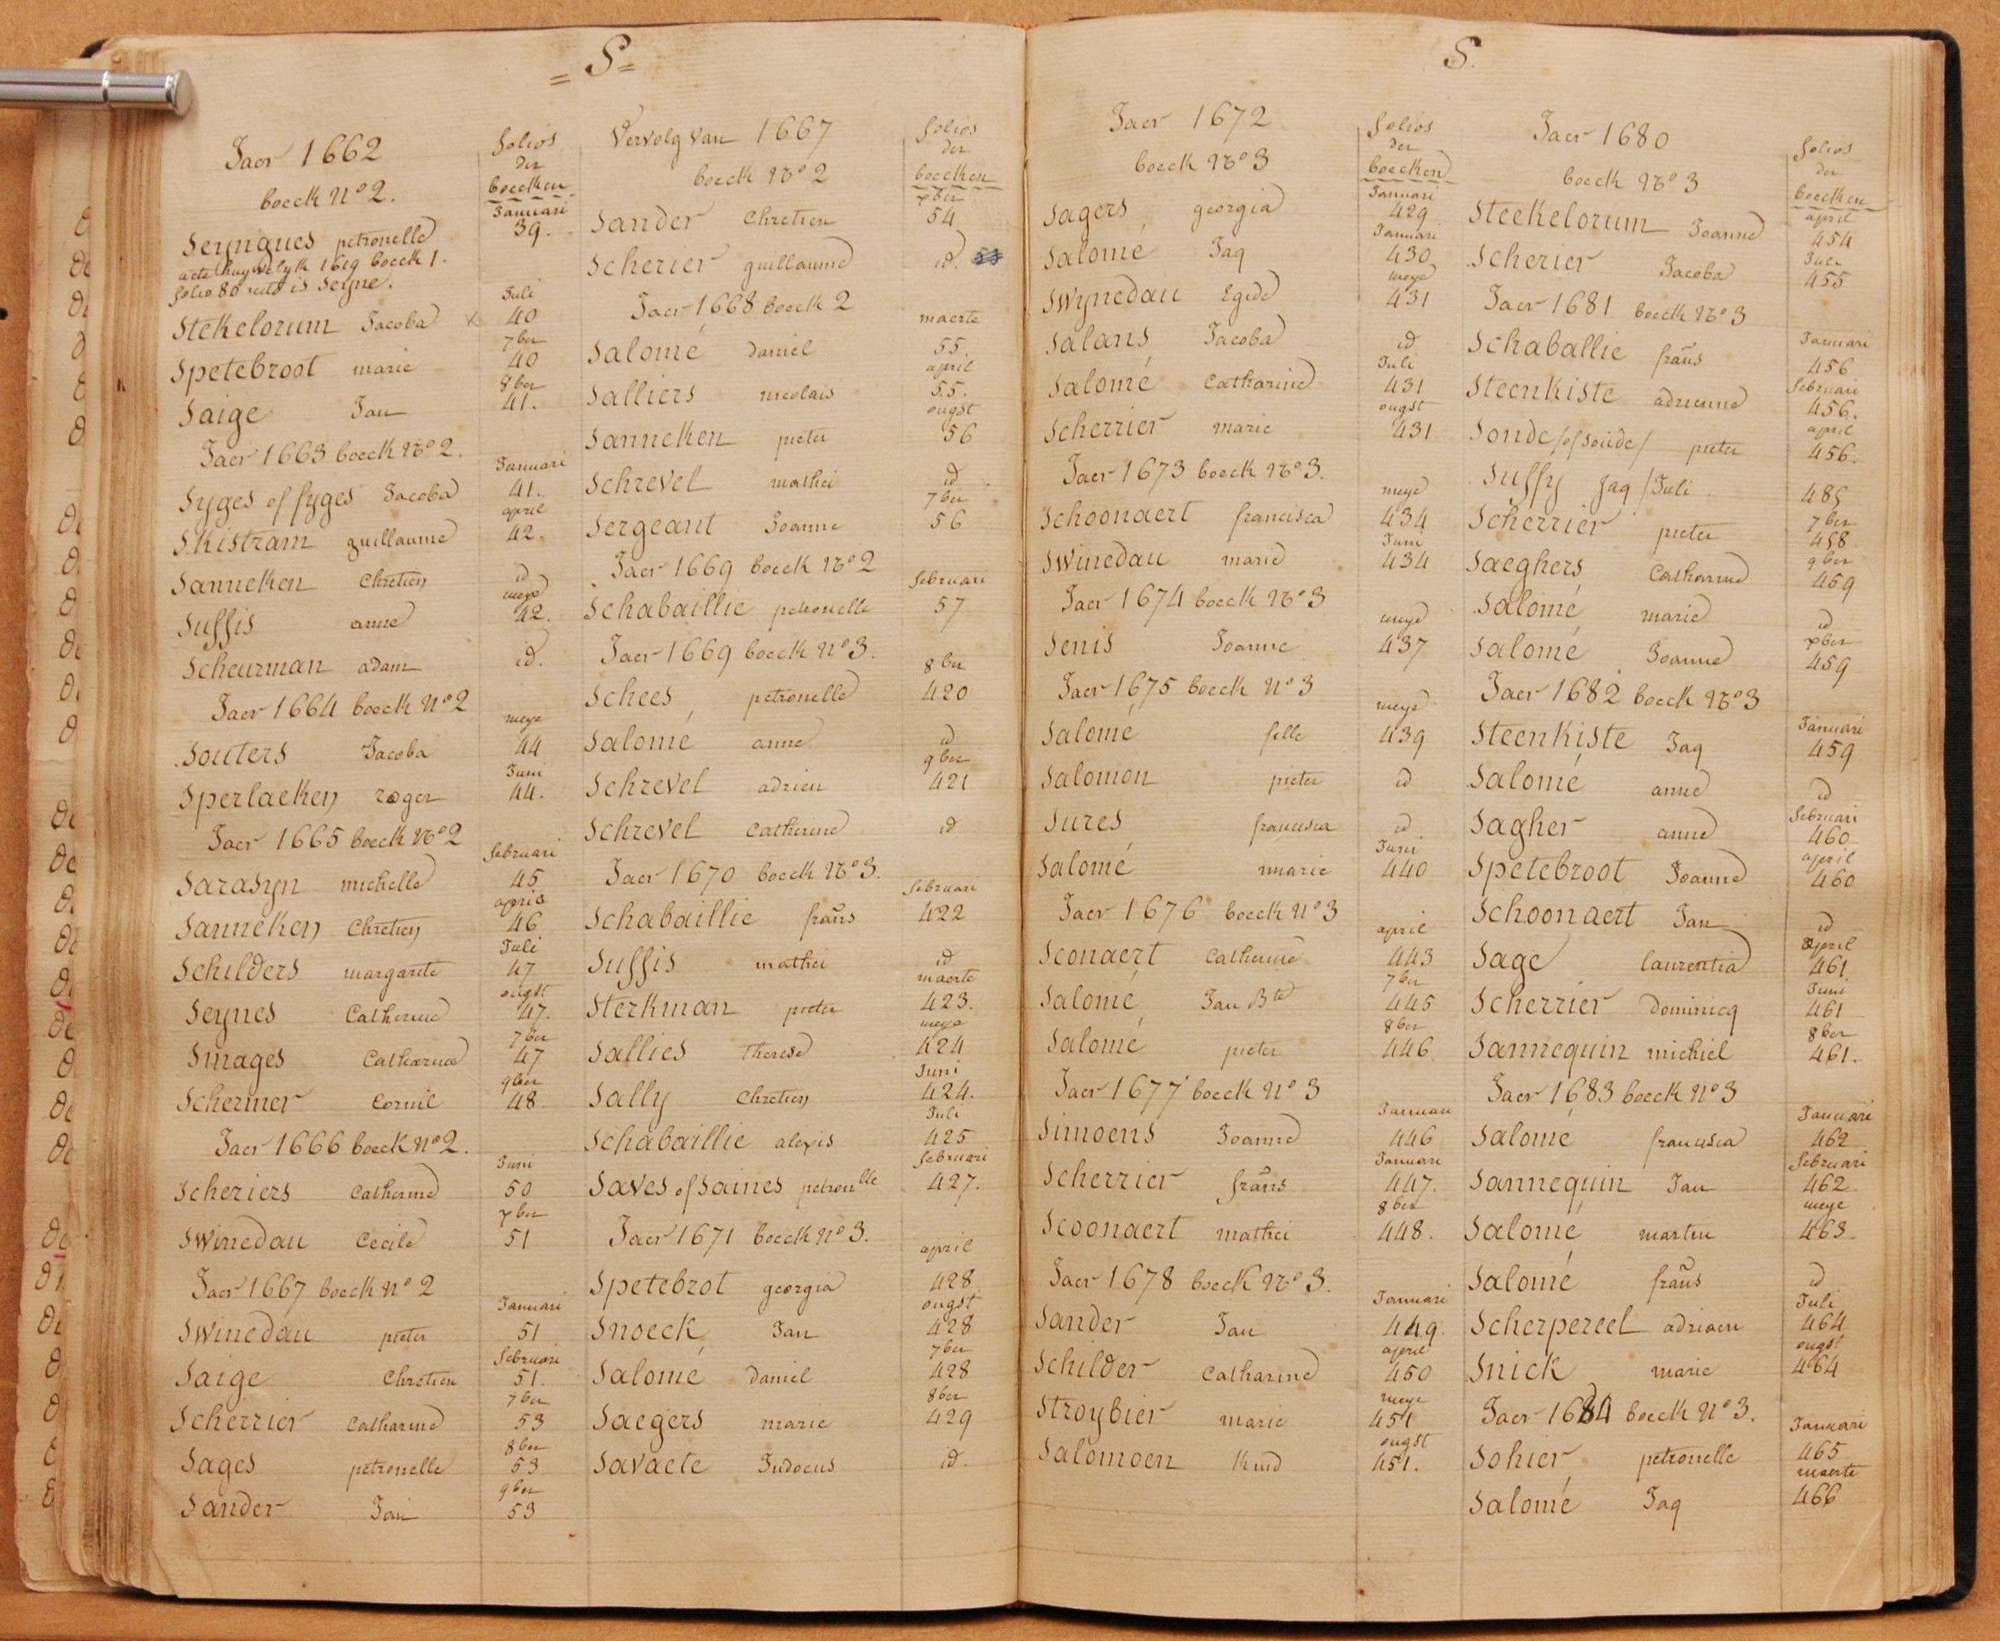 = S =
Jaer 1662
boeck No 2.
folios
der
boecken
Januari
Seynques petronelle 39.
acte huywelyk 1619 boeck 1.
folio 80 recto is Seyne.
Juli
Stekelorum Jacoba x 40
7ber
Spetebroot marie 40
8ber
Saige Jan 41.
Jaer 1663 boeck No 2.
Januari
Syges of fyges Jacoba 41.
april
Skistram guillaume 42.
Sanneken Chretien id
meye
Suffis anne 42.
Scheurman adam id.
Jaer 1664 boeck No 2
meye
Souters Jacoba 44
Juni
Sperlaeken roger 44.
Jaer 1665 boeck No 2
februari
Sarasyn michelle 45
april
Sanneken Chretien 46
Juli
Schilders margarite 47
ougst
Seynes Catherine 47.
7ber
Smages Catharine 47
9ber
Schermer Cornil 48
Jaer 1666 boeck No 2.
Juni
Scheriers Catherine 50
xber
Swinedau Cecile 51
Jaer 1667 boeck No 2
Januari
Swinedau pieter 51
februari
Saige Chretien 51.
7ber
Scherrier Catharine 53
8ber
Sages petronelle 53
9ber
Sander Jan 53
Vervolg van 1667
boeck No 2
folios
der
boecken
xber
Sander Chretien 54
Scherier guillaume id. 53
Jaer 1668 boeck 2
maerte
Salomé daniel 55.
april
Salliers nicolais 55.
ougst
Sanneken pieter 56
Schrevel mathei id
7ber
Sergeant Joanne 56
Jaer 1669 boeck No 2
februari
Schabaillie petronelle 57
Jaer 1669 boeck No 3.
8ber
Schees petronelle 420
Salomé anne id
9ber
Schrevel adrien 421
Schrevel Catherine id
Jaer 1670 boeck No 3.
februari
Schabaillie frans 422
Suffis mathei id
maerte
Sterkman pieter 423.
meye
Sallies therese 424
Juni
Sally Chretien 424.
Juli
Schabaillie alexis 425
februari
Saves of Saines petronlle 427.
Jaer 1671 boeck No 3.
april
Spetebrot georgia 428
ougst
Snoeck Jan 428
7ber
Salomé Daniel 428
8ber
Saegers marie 429
Savaete Judocus id.
S.
Jaer 1672
boeck No 3
folios
der
boecken
Januari
Sagers georgia 429
Januari
Salomé Jaq 430
meye
Swynedau Egide 431
Salans Jacoba id
Juli
Salomé Catharine 431
ougst
Scherrier marie 431
Jaer 1673 boeck No 3.
meye
Schoonaert francisca 434
Juni
Swinedau marie 434
Jaer 1674 boeck No 3
meye
Senis Joanne 437
Jaer 1675 boeck No 3
meye
Salomé fille 439
Salomon pieter id
Sures francisca id
Juni
Salomé marie 440
Jaer 1676 boeck No 3
april
Sconaert Catherine 443
7ber
Salomé Jan Bte 445
8ber
Salomé pieter 446
Jaer 1677 boeck No 3
Januari
Simoens Joanne 446
Januari
Scherrier frans 447.
8ber
Scoonaert mathei 448.
Jaer 1678 boeck No 3.
Januari
Sander Jan 449.
april
Schilder Catharine 450
meye
Stroybier marie 451
ougst
Salomoen kind 451.
Jaer 1680
boeck No 3
folios
der
boecken
april
Steekelorum Joanne 454
Juli
Scherier Jacoba 455
Jaer 1681 boeck No 3
Januari
Schaballie frans 456
februari
Steenkiste adrienne 456.
april
Sonde /of Soude/ pieter 456.
Suffy Jaq / Juli 485
7ber
Scherrier pieter 458
9ber
Saeghers Catharine 459
Salomé marie id
xber
Salomé Joanne 459
Jaer 1682 boeck No 3
Januari
Steenkiste Jaq 459
Salomé anne id
februari
Sagher anne 460
april
Spetebroot Joanne 460
Schoonaert Jan id
april
Sage laurentia 461
Juni
Scherrier Dominicq 461
8ber
Sannequin michiel 461.
Jaer 1683 boeck No 3
Januari
Salomé francisca 462
februari
Sannequin Jan 462
meye
Salomé martin 463
Salomé frans id
Juli
Scherpereel adriaen 464
ougst
Snick marie 464
Jaer 1684 boeck No 3.
Januari
Sohier petronelle 465
maerte
Salomé Jaq 466